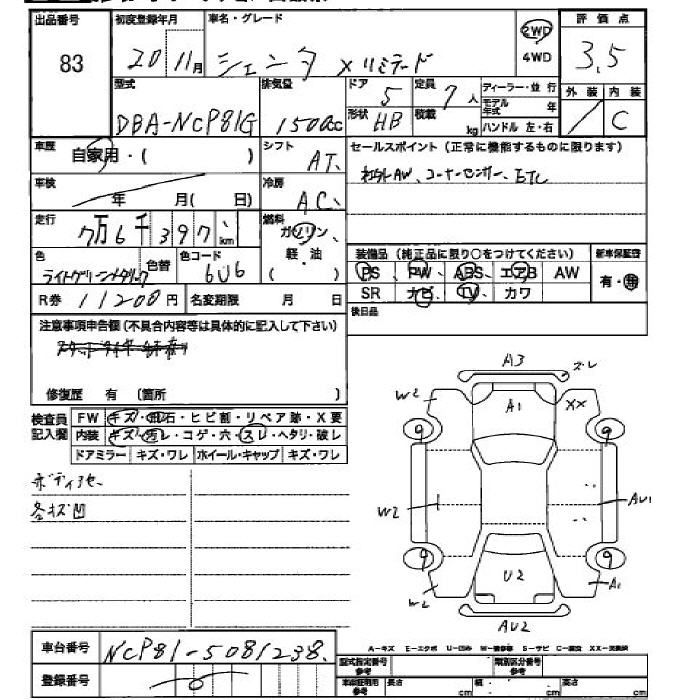 出品番号 初度登録年月 車名・グレード 2WD 評価点
83 20 11月 シエンタ Xリミテード 4WD 3.5
型式 排気量 ドア 5 定員 7人 ディーラー・並行 外装 内装
モデル年式 年
DBA-NCP81G 1500cc 形状 HB 積載 kg ハンドル 左・右 / C
車歴 自家用・( ) シフト AT セールスポイント(正常に機能するものに限ります)
車検 年 月( ) 冷房 AC 社外AW、コーナーセンサー、ETC
走行 7万6千397km 燃料 ガソリン
軽・油
( )
色 ライトグリーンメタリック 色替 色コード 6U6
装備品(純正品に限り○をつけてください) 新車保証書
PS PW ABS エアB AW 有・無
SR ナビ TV カワ
R券 11200円 名変期限 月 日
後日品
注意事項申告欄(不具合内容等は具体的に記入して下さい)
修復歴 有 (箇所 )
検査員記入欄 FW キズ・飛石・ヒビ割・リペア跡・X要
内装 キズ・汚レ・コゲ・穴・スレ・ヘタリ・破レ
ドアミラー キズ・ワレ ホイール・キャップ キズ・ワレ
ボディ
各キズ凹
A3 スレ
W2 A1 XX
9 9
W2 AU1
9 9
W2 U2 A1
AU2
A-キズ E-エクボ U-凹み W-補修跡 S-サビ C-腐食 XX-交換済
車台番号 NCP81-5081238
登録番号
型式指定番号 参考 類別区分番号 参考
車庫証明用 参考 長さ cm 幅 cm 高さ cm